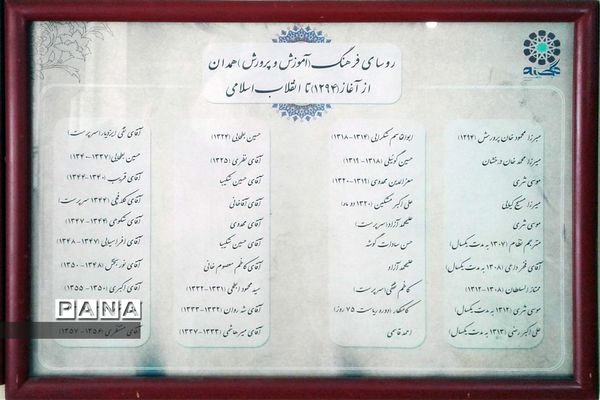 روسای فرهنگ (آموزش و پرورش) همدان
از آغاز (۱۲۹۴) تا انقلاب اسلامی
میرزا محمود خان پرورش (۱۲۹۴)
میرزا محمد خان درخشان
موسی نثری
میرزا مسیح کیوانی
موسی نثری
مترجم نظام (۱۳۰۷ به مدت یکسال)
آقای فخر داعی (۱۳۰۸ به مدت یکسال)
ممتاز السلطان (۱۳۰۸-۱۳۱۲)
موسی نثری (۱۳۱۲ به مدت یکسال)
علی اکبر رضی (۱۳۱۳ به مدت یکسال)
ابوالقاسم شکرایی (۱۳۱۴-۱۳۱۸)
حسین گونیلی (۱۳۱۸-۱۳۱۹)
معزالدین مهدوی (۱۳۱۹-۱۳۲۰)
علی اکبر مشکین (۱۳۲۰ دو ماه)
علیمحمد آزاد (سرپرست)
حسن سادات گوشه
علیمحمد آزاد
کاظم حقیقی (سرپرست)
کامکار (دوره ریاست ۷۵ روز)
احمد قاسمی
حسین بطحایی (۱۳۲۴)
آقای نظری (۱۳۲۵)
آقای حسین شکیبا
آقای آقاخانی
آقای مهدوی
آقای حسین شکیبا
آقای کاظم معصوم خانی
سید محمود ابطحی (۱۳۳۱-۱۳۳۲)
آقای شه روان (۱۳۳۲-۱۳۳۳)
آقای میرهاشمی (۱۳۳۳-۱۳۳۷)
آقای تقی ایزدیار (سرپرست)
حسین بطحایی (۱۳۳۷-۱۳۴۰)
آقای قریب (۱۳۴۰-۱۳۴۴)
آقای کلافچی (۱۳۴۴ سرپرست)
آقای شکوهی (۱۳۴۴-۱۳۴۷)
آقای افراسیابی (۱۳۴۷-۱۳۴۸)
آقای نوربخش (۱۳۴۸-۱۳۵۰)
آقای اکبری (۱۳۵۰-۱۳۵۵)
آقای منتظری (۱۳۵۶-۱۳۵۷)
PANA